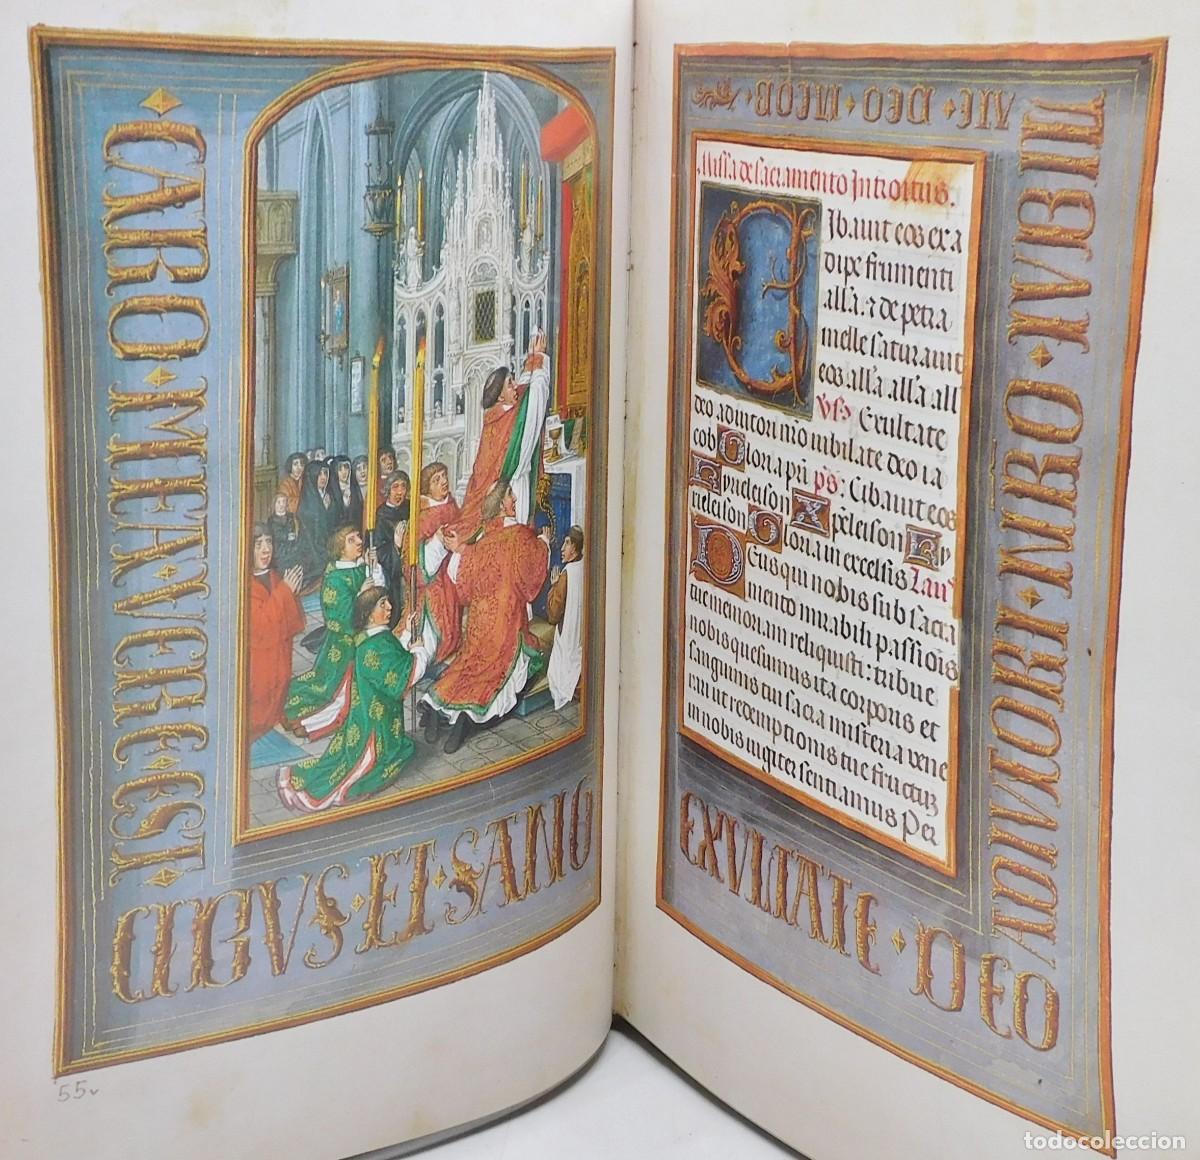 CARO · MEA · VERE · EST ·
CIBVS · ET · SANG
55v
Missa de sacramento Introitus.
Cibavit eos ex a
dipe frumenti
all'a. ⁊ de petra
melle saturavit
eos all'a all'a all'
Vs̃ Exultate
deo adiutori nr̃o iubilate deo ia
cob Gloria pr̃i p̃s: Cibavit eos
Kyrieleison Xp̃eleison Ky
rieleison Gloria in excelsis Laus
Deus qui nobis sub sacra
mento mirabili passiõis
tue memoriam reliquisti: tribue
nobis quesumus ita corporis et
sanguinis tui sacra misteria vene
rari ut redemptionis tue fructũ
in nobis iugiter sentiamus Per
EXVLTATE · DEO
ADIVTORI · NR̃O · IVBIL
ATE · DEO · IACOB ·
todocoleccion